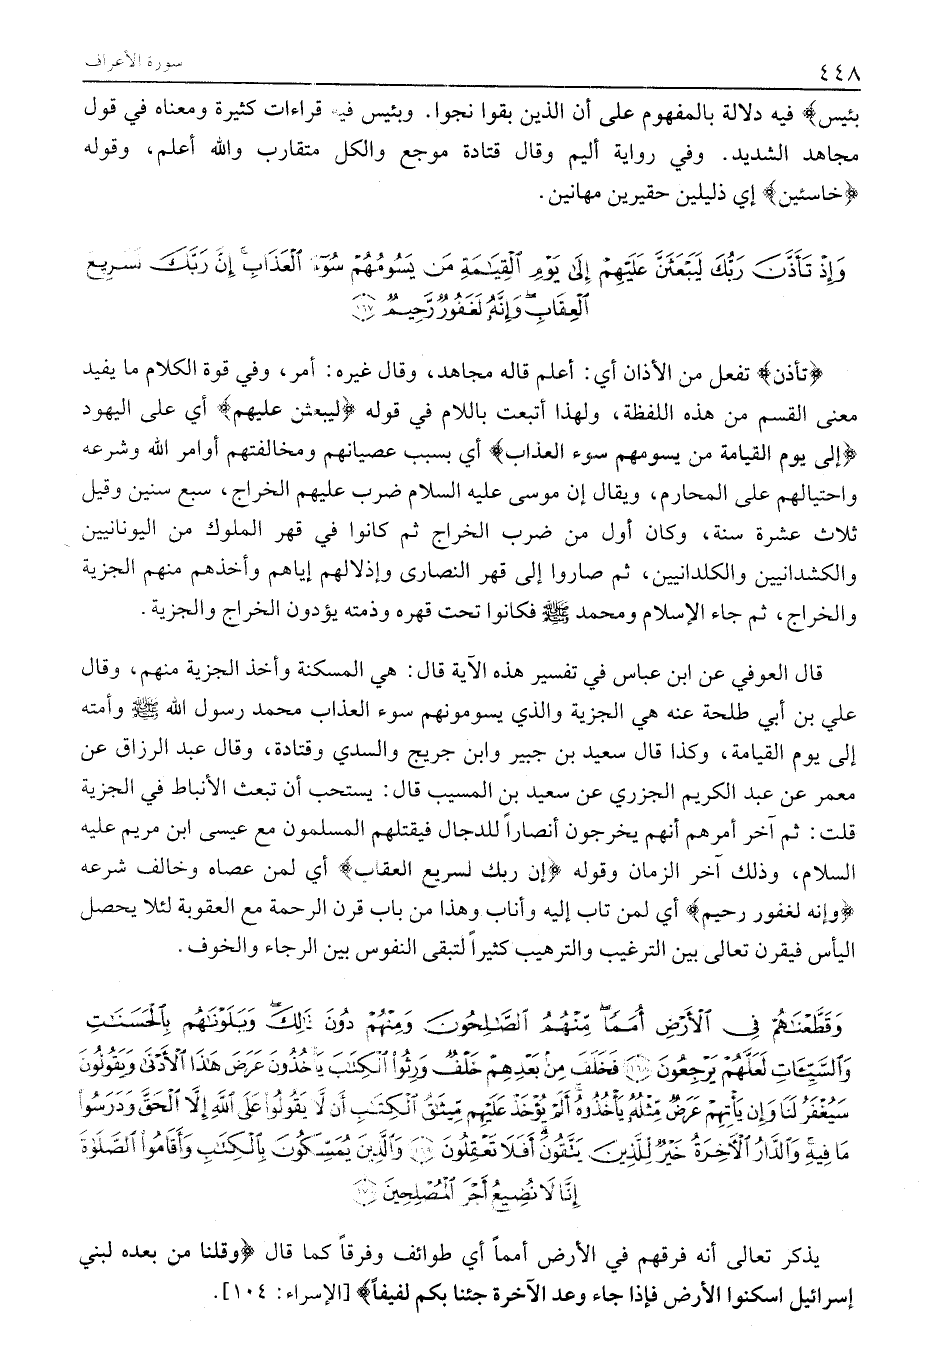 ٤٤٨ سورة الأعراف
بئيس﴾ فيه دلالة بالمفهوم على أن الذين بقوا نجوا. وبئيس فيه قراءات كثيرة ومعناه في قول
مجاهد الشديد. وفي رواية أليم وقال قتادة موجع والكل متقارب والله أعلم، وقوله
﴿خاسئين﴾ إي ذليلين حقيرين مهانين.
وَإِذْ تَأَذَّنَ رَبُّكَ لَيَبْعَثَنَّ عَلَيْهِمْ إِلَىٰ يَوْمِ ٱلْقِيَٰمَةِ مَن يَسُومُهُمْ سُوٓءَ ٱلْعَذَابِ ۗ إِنَّ رَبَّكَ لَسَرِيعُ
ٱلْعِقَابِ ۖ وَإِنَّهُۥ لَغَفُورٌ رَّحِيمٌ ﴿١٦٧﴾
﴿تأذن﴾ تفعل من الأذان أي: أعلم قاله مجاهد، وقال غيره: أمر، وفي قوة الكلام ما يفيد
معنى القسم من هذه اللفظة، ولهذا أتبعت باللام في قوله ﴿ليبعثن عليهم﴾ أي على اليهود
﴿إلى يوم القيامة من يسومهم سوء العذاب﴾ أي بسبب عصيانهم ومخالفتهم أوامر الله وشرعه
واحتيالهم على المحارم، ويقال إن موسى عليه السلام ضرب عليهم الخراج، سبع سنين وقيل
ثلاث عشرة سنة، وكان أول من ضرب الخراج ثم كانوا في قهر الملوك من اليونانيين
والكشدانيين والكلدانيين، ثم صاروا إلى قهر النصارى وإذلالهم إياهم وأخذهم منهم الجزية
والخراج، ثم جاء الإسلام ومحمد ﷺ فكانوا تحت قهره وذمته يؤدون الخراج والجزية.
قال العوفي عن ابن عباس في تفسير هذه الآية قال: هي المسكنة وأخذ الجزية منهم، وقال
علي بن أبي طلحة عنه هي الجزية والذي يسومونهم سوء العذاب محمد رسول الله ﷺ وأمته
إلى يوم القيامة، وكذا قال سعيد بن جبير وابن جريج والسدي وقتادة، وقال عبد الرزاق عن
معمر عن عبد الكريم الجزري عن سعيد بن المسيب قال: يستحب أن تبعث الأنباط في الجزية
قلت: ثم آخر أمرهم أنهم يخرجون أنصاراً للدجال فيقتلهم المسلمون مع عيسى ابن مريم عليه
السلام، وذلك آخر الزمان وقوله ﴿إن ربك لسريع العقاب﴾ أي لمن عصاه وخالف شرعه
﴿وإنه لغفور رحيم﴾ أي لمن تاب إليه وأناب وهذا من باب قرن الرحمة مع العقوبة لئلا يحصل
اليأس فيقرن تعالى بين الترغيب والترهيب كثيراً لتبقى النفوس بين الرجاء والخوف.
وَقَطَّعْنَٰهُمْ فِى ٱلْأَرْضِ أُمَمًا ۖ مِّنْهُمُ ٱلصَّٰلِحُونَ وَمِنْهُمْ دُونَ ذَٰلِكَ ۖ وَبَلَوْنَٰهُم بِٱلْحَسَنَٰتِ
وَٱلسَّيِّـَٔاتِ لَعَلَّهُمْ يَرْجِعُونَ ﴿١٦٨﴾ فَخَلَفَ مِنۢ بَعْدِهِمْ خَلْفٌ وَرِثُوا۟ ٱلْكِتَٰبَ يَأْخُذُونَ عَرَضَ هَٰذَا ٱلْأَدْنَىٰ وَيَقُولُونَ
سَيُغْفَرُ لَنَا وَإِن يَأْتِهِمْ عَرَضٌ مِّثْلُهُۥ يَأْخُذُوهُ ۚ أَلَمْ يُؤْخَذْ عَلَيْهِم مِّيثَٰقُ ٱلْكِتَٰبِ أَن لَّا يَقُولُوا۟ عَلَى ٱللَّهِ إِلَّا ٱلْحَقَّ وَدَرَسُوا۟
مَا فِيهِ ۗ وَٱلدَّارُ ٱلْـَٔاخِرَةُ خَيْرٌ لِّلَّذِينَ يَتَّقُونَ ۗ أَفَلَا تَعْقِلُونَ ﴿١٦٩﴾ وَٱلَّذِينَ يُمَسِّكُونَ بِٱلْكِتَٰبِ وَأَقَامُوا۟ ٱلصَّلَوٰةَ
إِنَّا لَا نُضِيعُ أَجْرَ ٱلْمُصْلِحِينَ ﴿١٧٠﴾
يذكر تعالى أنه فرقهم في الأرض أمماً أي طوائف وفرقاً كما قال ﴿وقلنا من بعده لبني
إسرائيل اسكنوا الأرض فإذا جاء وعد الآخرة جئنا بكم لفيفاً﴾ [الإسراء: ١٠٤].